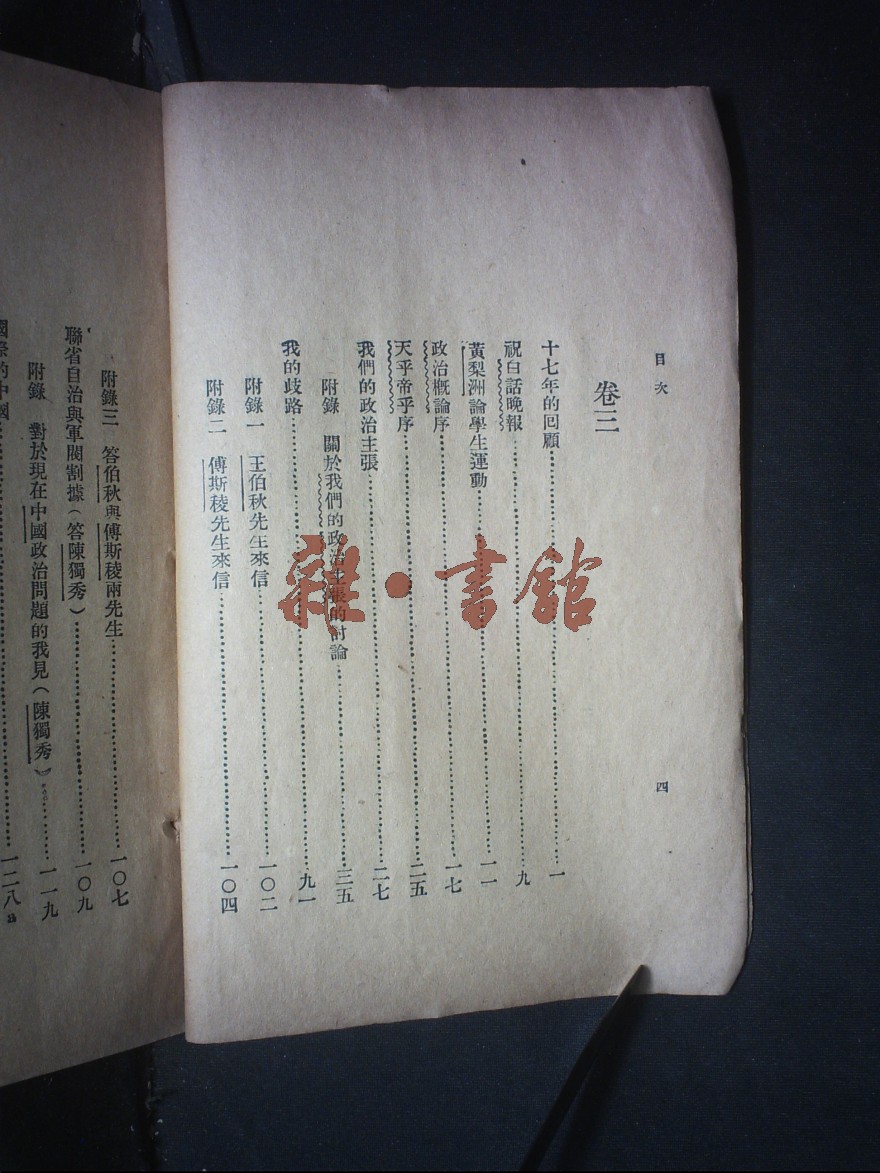 目次
四
卷三
十七年的回顧…………一
祝白話晚報…………九
黃梨洲論學生運動…………一一
政治概論序…………一七
天乎帝乎序…………二五
我們的政治主張…………二七
附錄 關於我們的政治主張的討論…………三五
我的歧路…………九一
附錄一 王伯秋先生來信…………一〇二
附錄二 傅斯稜先生來信…………一〇四
附錄三 答伯秋與傅斯稜兩先生…………一〇七
聯省自治與軍閥割據(答陳獨秀)…………一〇九
附錄 對於現在中國政治問題的我見(陳獨秀)…………一一九
國際的中國…………一二八
雜·書館